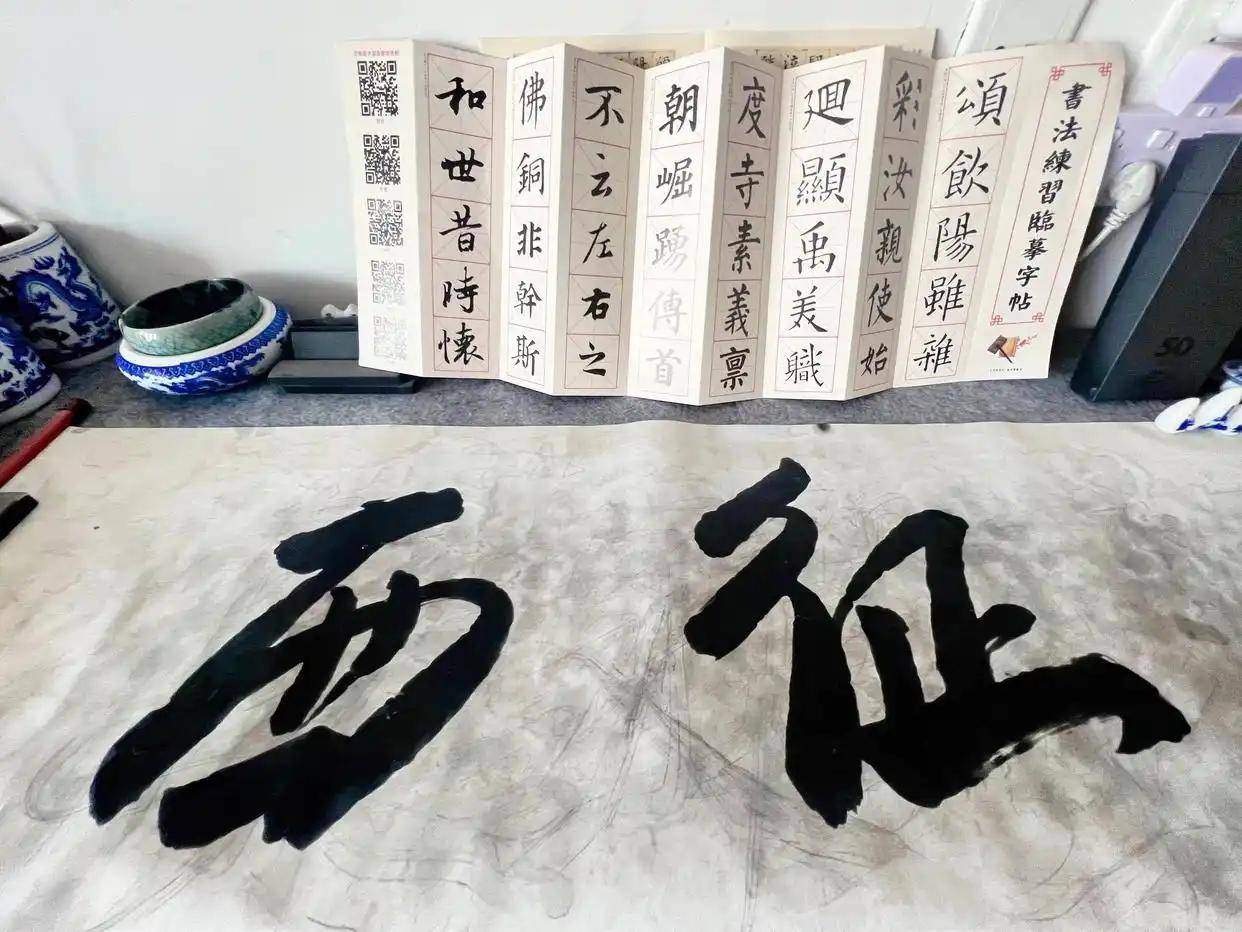 書法練習臨摹字帖
頌飲陽雖雜
彩汝親使始
廻顯禹美職
度寺素義禀
朝崛踴傳首
不云左右之
佛銅非幹斯
和世昔時懷
50
征西